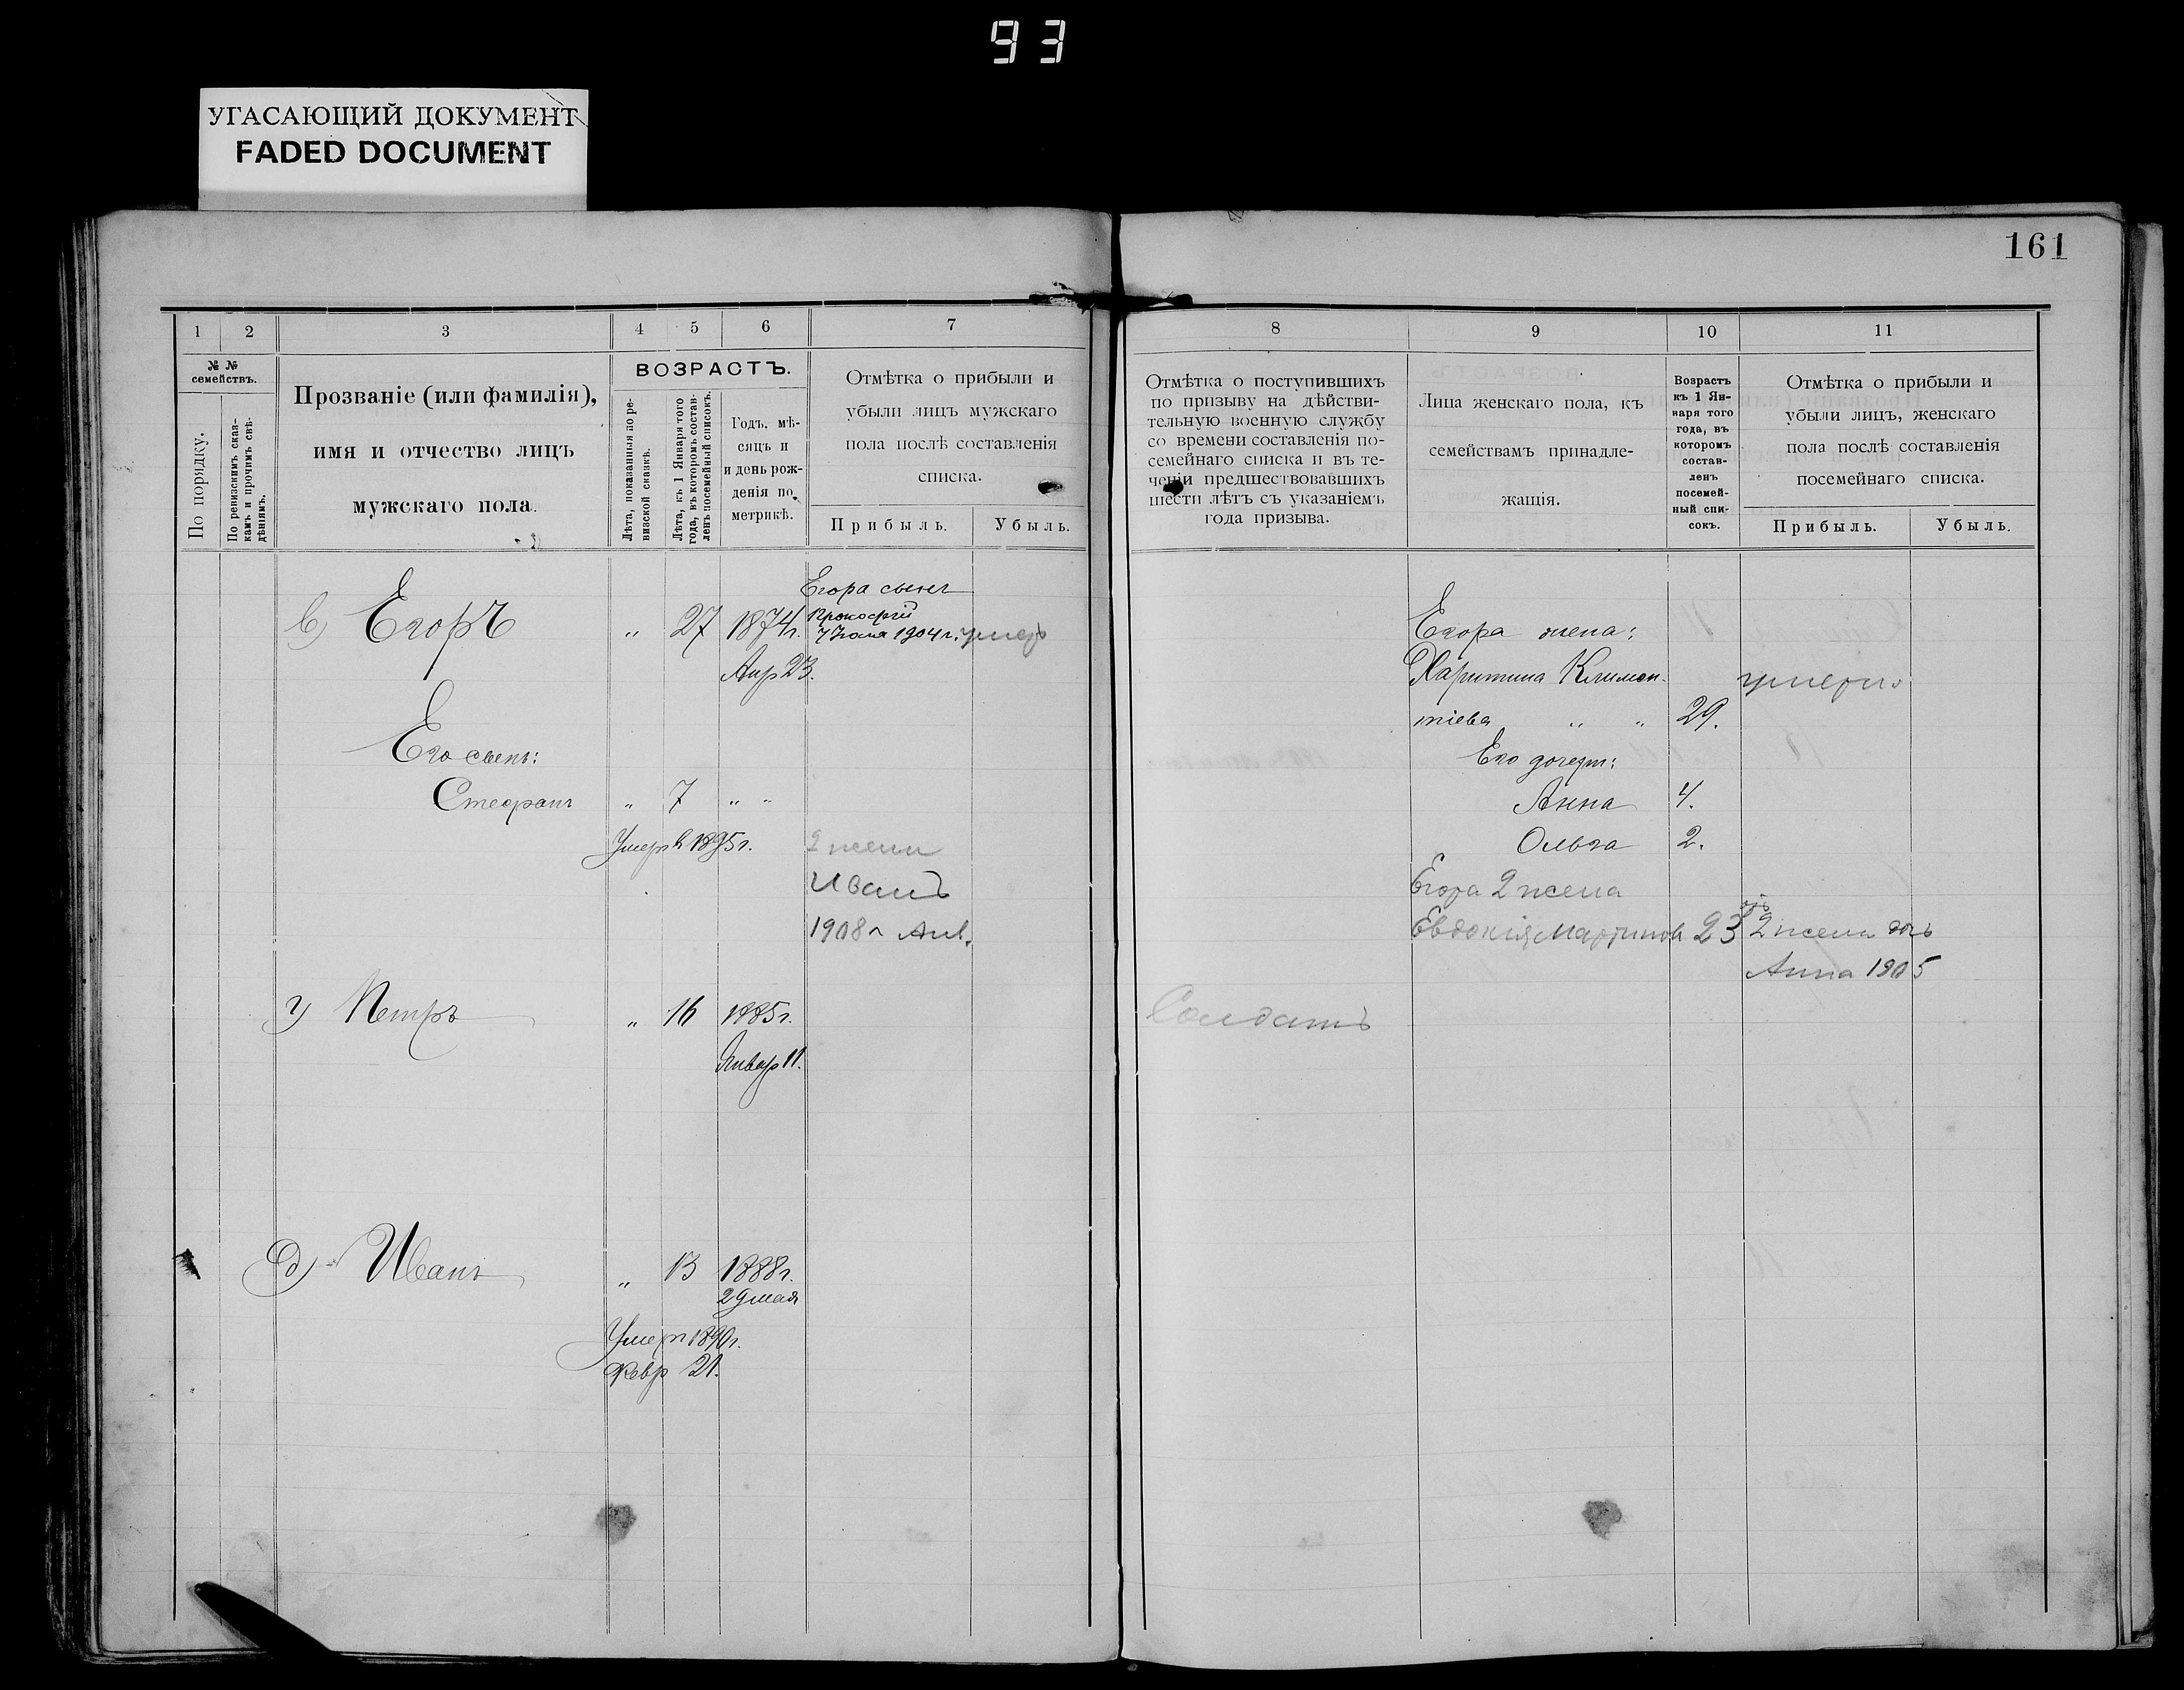 93
УГАСАЮЩИЙ ДОКУМЕНТ
FADED DOCUMENT
161
1 2 3 4 5 6 7
№ № семействъ.
По порядку.
По ревизскимъ сказ-
камъ и прочимъ свѣ-
дѣніямъ.
Прозваніе (или фамилія),
имя и отчество лицъ
мужскаго пола.
ВОЗРАСТЪ.
Лѣта, показанныя по ре-
визской сказкѣ.
Лѣта, къ 1 Января того
года, въ которомъ состав-
ленъ посемейный списокъ.
Годъ, мѣ-
сяцъ и
и день рож-
денія по
метрикѣ.
Отмѣтка о прибыли и
убыли лицъ мужскаго
пола послѣ составленія
списка.
Прибыль. Убыль.
8 9 10 11
Отмѣтка о поступившихъ
по призыву на дѣйстви-
тельную военную службу
со времени составленія по-
семейнаго списка и въ те-
ченіи предшествовавшихъ
шести лѣтъ съ указаніемъ
года призыва.
Лица женскаго пола, къ
семействамъ принадле-
жащія.
Возрастъ
къ 1 Ян-
варя того
года, въ
которомъ
состав-
ленъ
посемей-
ный спи-
сокъ.
Отмѣтка о прибыли и
убыли лицъ, женскаго
пола послѣ составленія
посемейнаго списка.
Прибыль. Убыль.
Егора сынъ
в) Егоръ " 27 1874г. Прокофій
7 Іюля 1904 г. умеръ
Апр 23.
Его сынъ:
Стефанъ " 7 " "
Умеръ в 1895г.
2 жены
Иванъ
1908 г Янв.
г) Петръ " 16 1885г.
Январ 11.
д) Иванъ " 13 1888г.
29 мая
Умеръ 1890г.
Февр 21.
Егора жена:
Харитина Климен-
тіева " " 29.
умерла
Его дочери:
Анна 4.
Ольга 2.
Егора 2 жена
Евдокія Мартинова 23
2 жены дочь
Анна 1905
Солдатъ